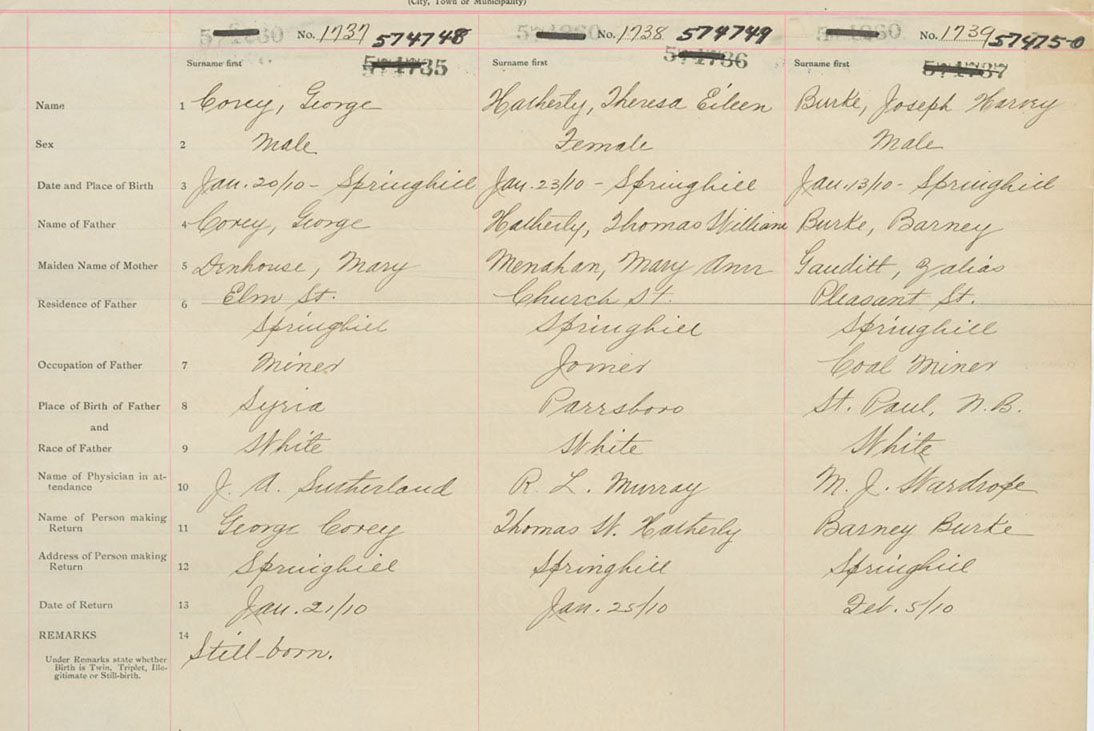 (City, Town or Municipality)
No. 1737 574748 No. 1738 574749 No. 1739 574750
574735 574736 574737
Surname first Surname first Surname first
Name 1 Corey, George Hatherly, Theresa Eileen Burke, Joseph Harvey
Sex 2 Male Female Male
Date and Place of Birth 3 Jan. 20/10 - Springhill Jan. 23/10 - Springhill Jan. 13/10 - Springhill
Name of Father 4 Corey, George Hatherly, Thomas William Burke, Barney
Maiden Name of Mother 5 Denhouse, Mary Menahan, Mary Ann Gauditt, Zalias
Residence of Father 6 Elm St. Church St. Pleasant St.
Springhill Springhill Springhill
Occupation of Father 7 Miner Joiner Coal Miner
Place of Birth of Father 8 Syria Parrsboro St. Paul, N.B.
and
Race of Father 9 White White White
Name of Physician in at-
tendance 10 J. A. Sutherland R. L. Murray M. J. Wardrope
Name of Person making
Return 11 George Corey Thomas W. Hatherly Barney Burke
Address of Person making
Return 12 Springhill Springhill Springhill
Date of Return 13 Jan. 21/10 Jan. 25/10 Feb. 5/10
REMARKS 14 Still-born.
Under Remarks state whether
Birth is Twin, Triplet, Ille-
gitimate or Still-birth.